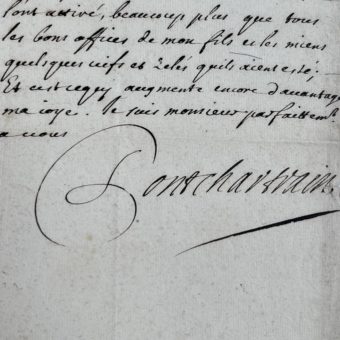 l'ont attiré, beaucoup plus que tous
les bons offices de mon fils et les miens
quelques vifs et zelés qu'ils aient esté,
Et c'est ce qui augmente encore d'avantage
ma joye. Je suis monsieur parfaittem.t
a vous
Pontchartrain